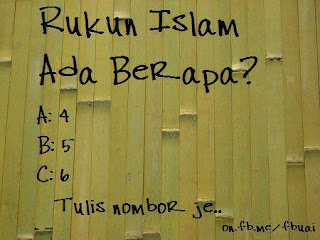 Rukun Islam
Ada Berapa?
A: 4
B: 5
C: 6
Tulis nombor je..
on.fb.me/fbuai